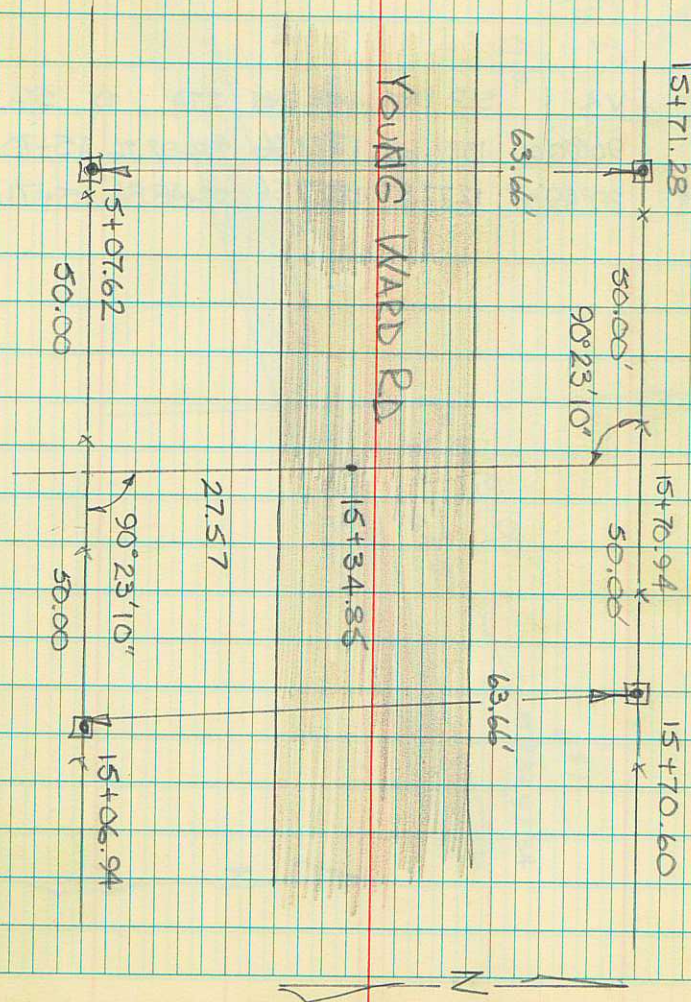 15+71.28
50.00'
90°23'10"
15+70.94
50.00'
15+70.60
63.66'
63.66'
YOUNG WARD RD
15+34.85
27.57
15+07.62
50.00
90°23'10"
50.00
15+06.94
N